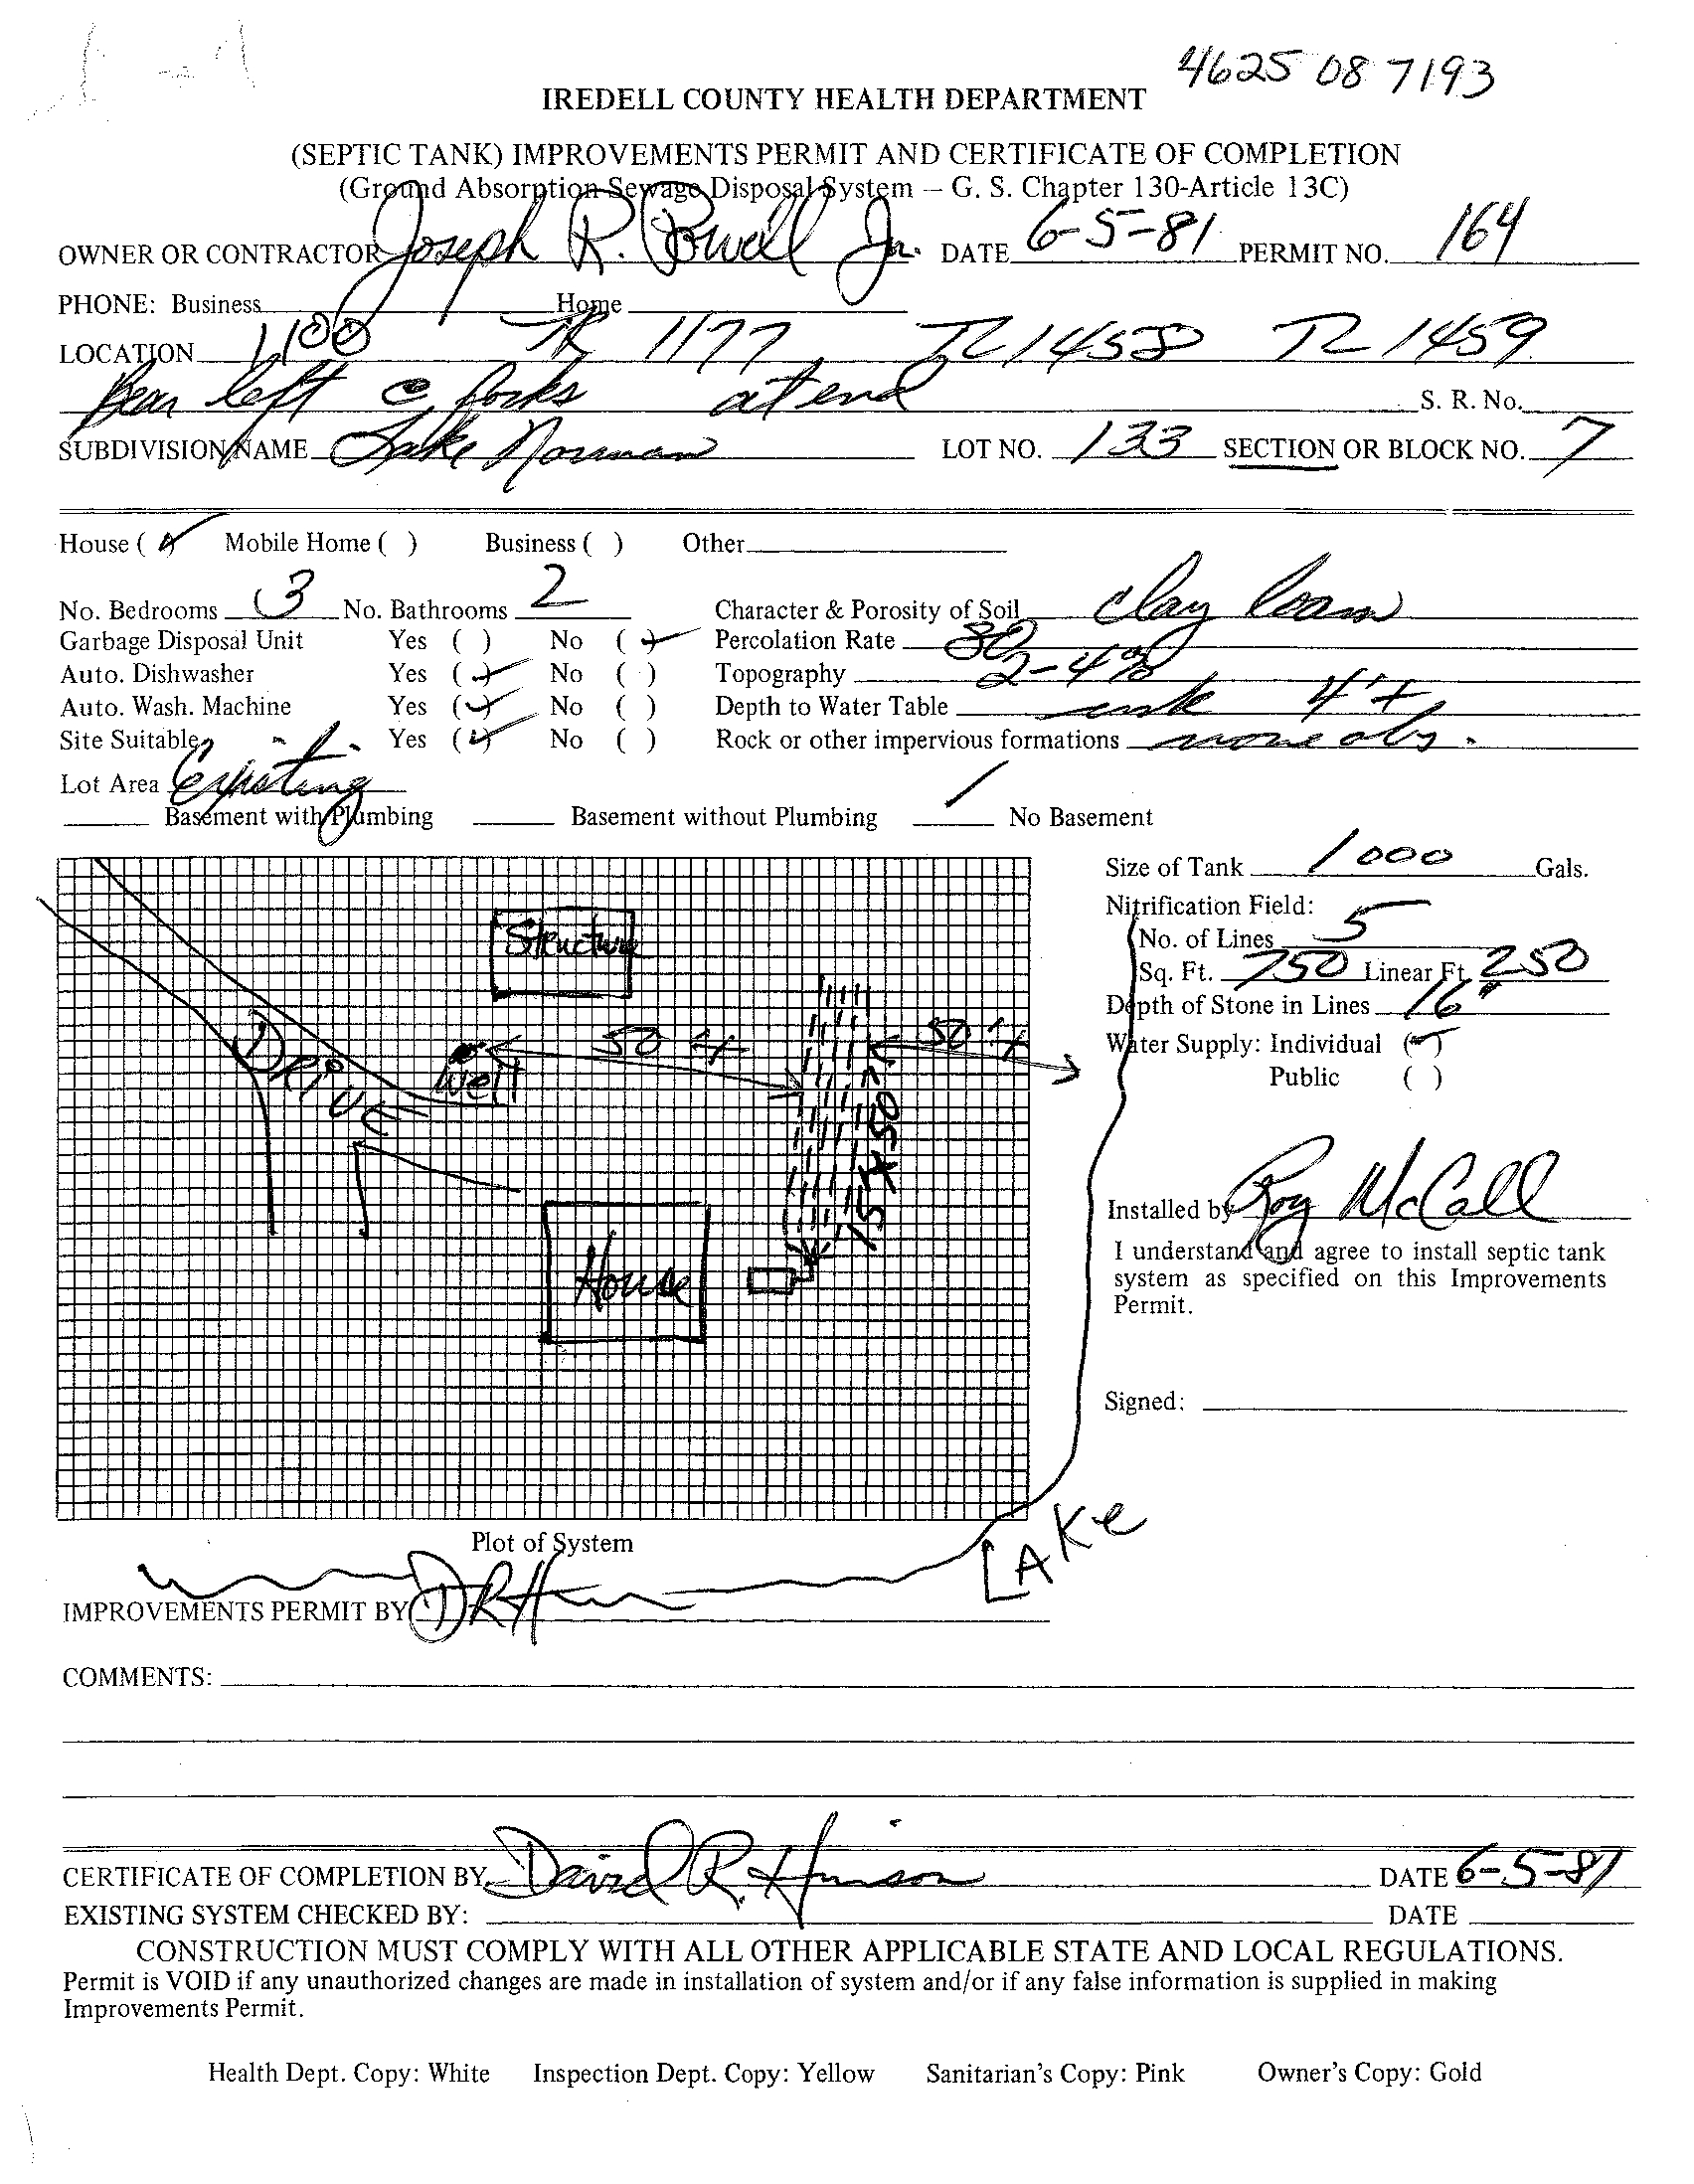 4625 08 7193
IREDELL COUNTY HEALTH DEPARTMENT
(SEPTIC TANK) IMPROVEMENTS PERMIT AND CERTIFICATE OF COMPLETION
(Ground Absorption Sewage Disposal System – G. S. Chapter 130-Article 13C)
OWNER OR CONTRACTOR Joseph R. Powell Jr. DATE 6-5-81 PERMIT NO. 164
PHONE: Business Home
LOCATION 1100 TR 1177 TL 1458 TL 1459
Bear left @ forks at end S. R. No.
SUBDIVISION NAME Lake Norman LOT NO. 133 SECTION OR BLOCK NO. 7
House ( ) Mobile Home ( ) Business ( ) Other
No. Bedrooms 3 No. Bathrooms 2 Character & Porosity of Soil clay loam
Garbage Disposal Unit Yes ( ) No (✓) Percolation Rate 80
Auto. Dishwasher Yes (✓) No ( ) Topography 2-4%
Auto. Wash. Machine Yes (✓) No ( ) Depth to Water Table 4'+
Site Suitable Yes (✓) No ( ) Rock or other impervious formations none obs.
Lot Area Existing
Basement with Plumbing Basement without Plumbing ✓ No Basement
Size of Tank 1000 Gals.
Nitrification Field:
No. of Lines 5
Sq. Ft. 750 Linear Ft. 250
Depth of Stone in Lines 16"
Water Supply: Individual (✓)
Public ( )
Structure
DRIVE
Well
50 '+
50 '+
15 x 50
House
Installed by Roy McCall
I understand and agree to install septic tank
system as specified on this Improvements
Permit.
Signed:
LAKE
Plot of System
IMPROVEMENTS PERMIT BY DRH
COMMENTS:
CERTIFICATE OF COMPLETION BY David R. Hinson DATE 6-5-81
EXISTING SYSTEM CHECKED BY: DATE
CONSTRUCTION MUST COMPLY WITH ALL OTHER APPLICABLE STATE AND LOCAL REGULATIONS.
Permit is VOID if any unauthorized changes are made in installation of system and/or if any false information is supplied in making
Improvements Permit.
Health Dept. Copy: White Inspection Dept. Copy: Yellow Sanitarian's Copy: Pink Owner's Copy: Gold